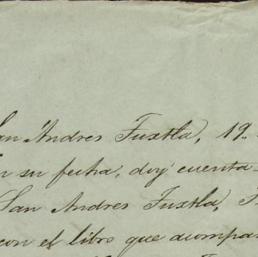 San Andres Tuxtla, 19..
en su fecha, doy cuenta
San Andres Tuxtla,
con el libro que acompa